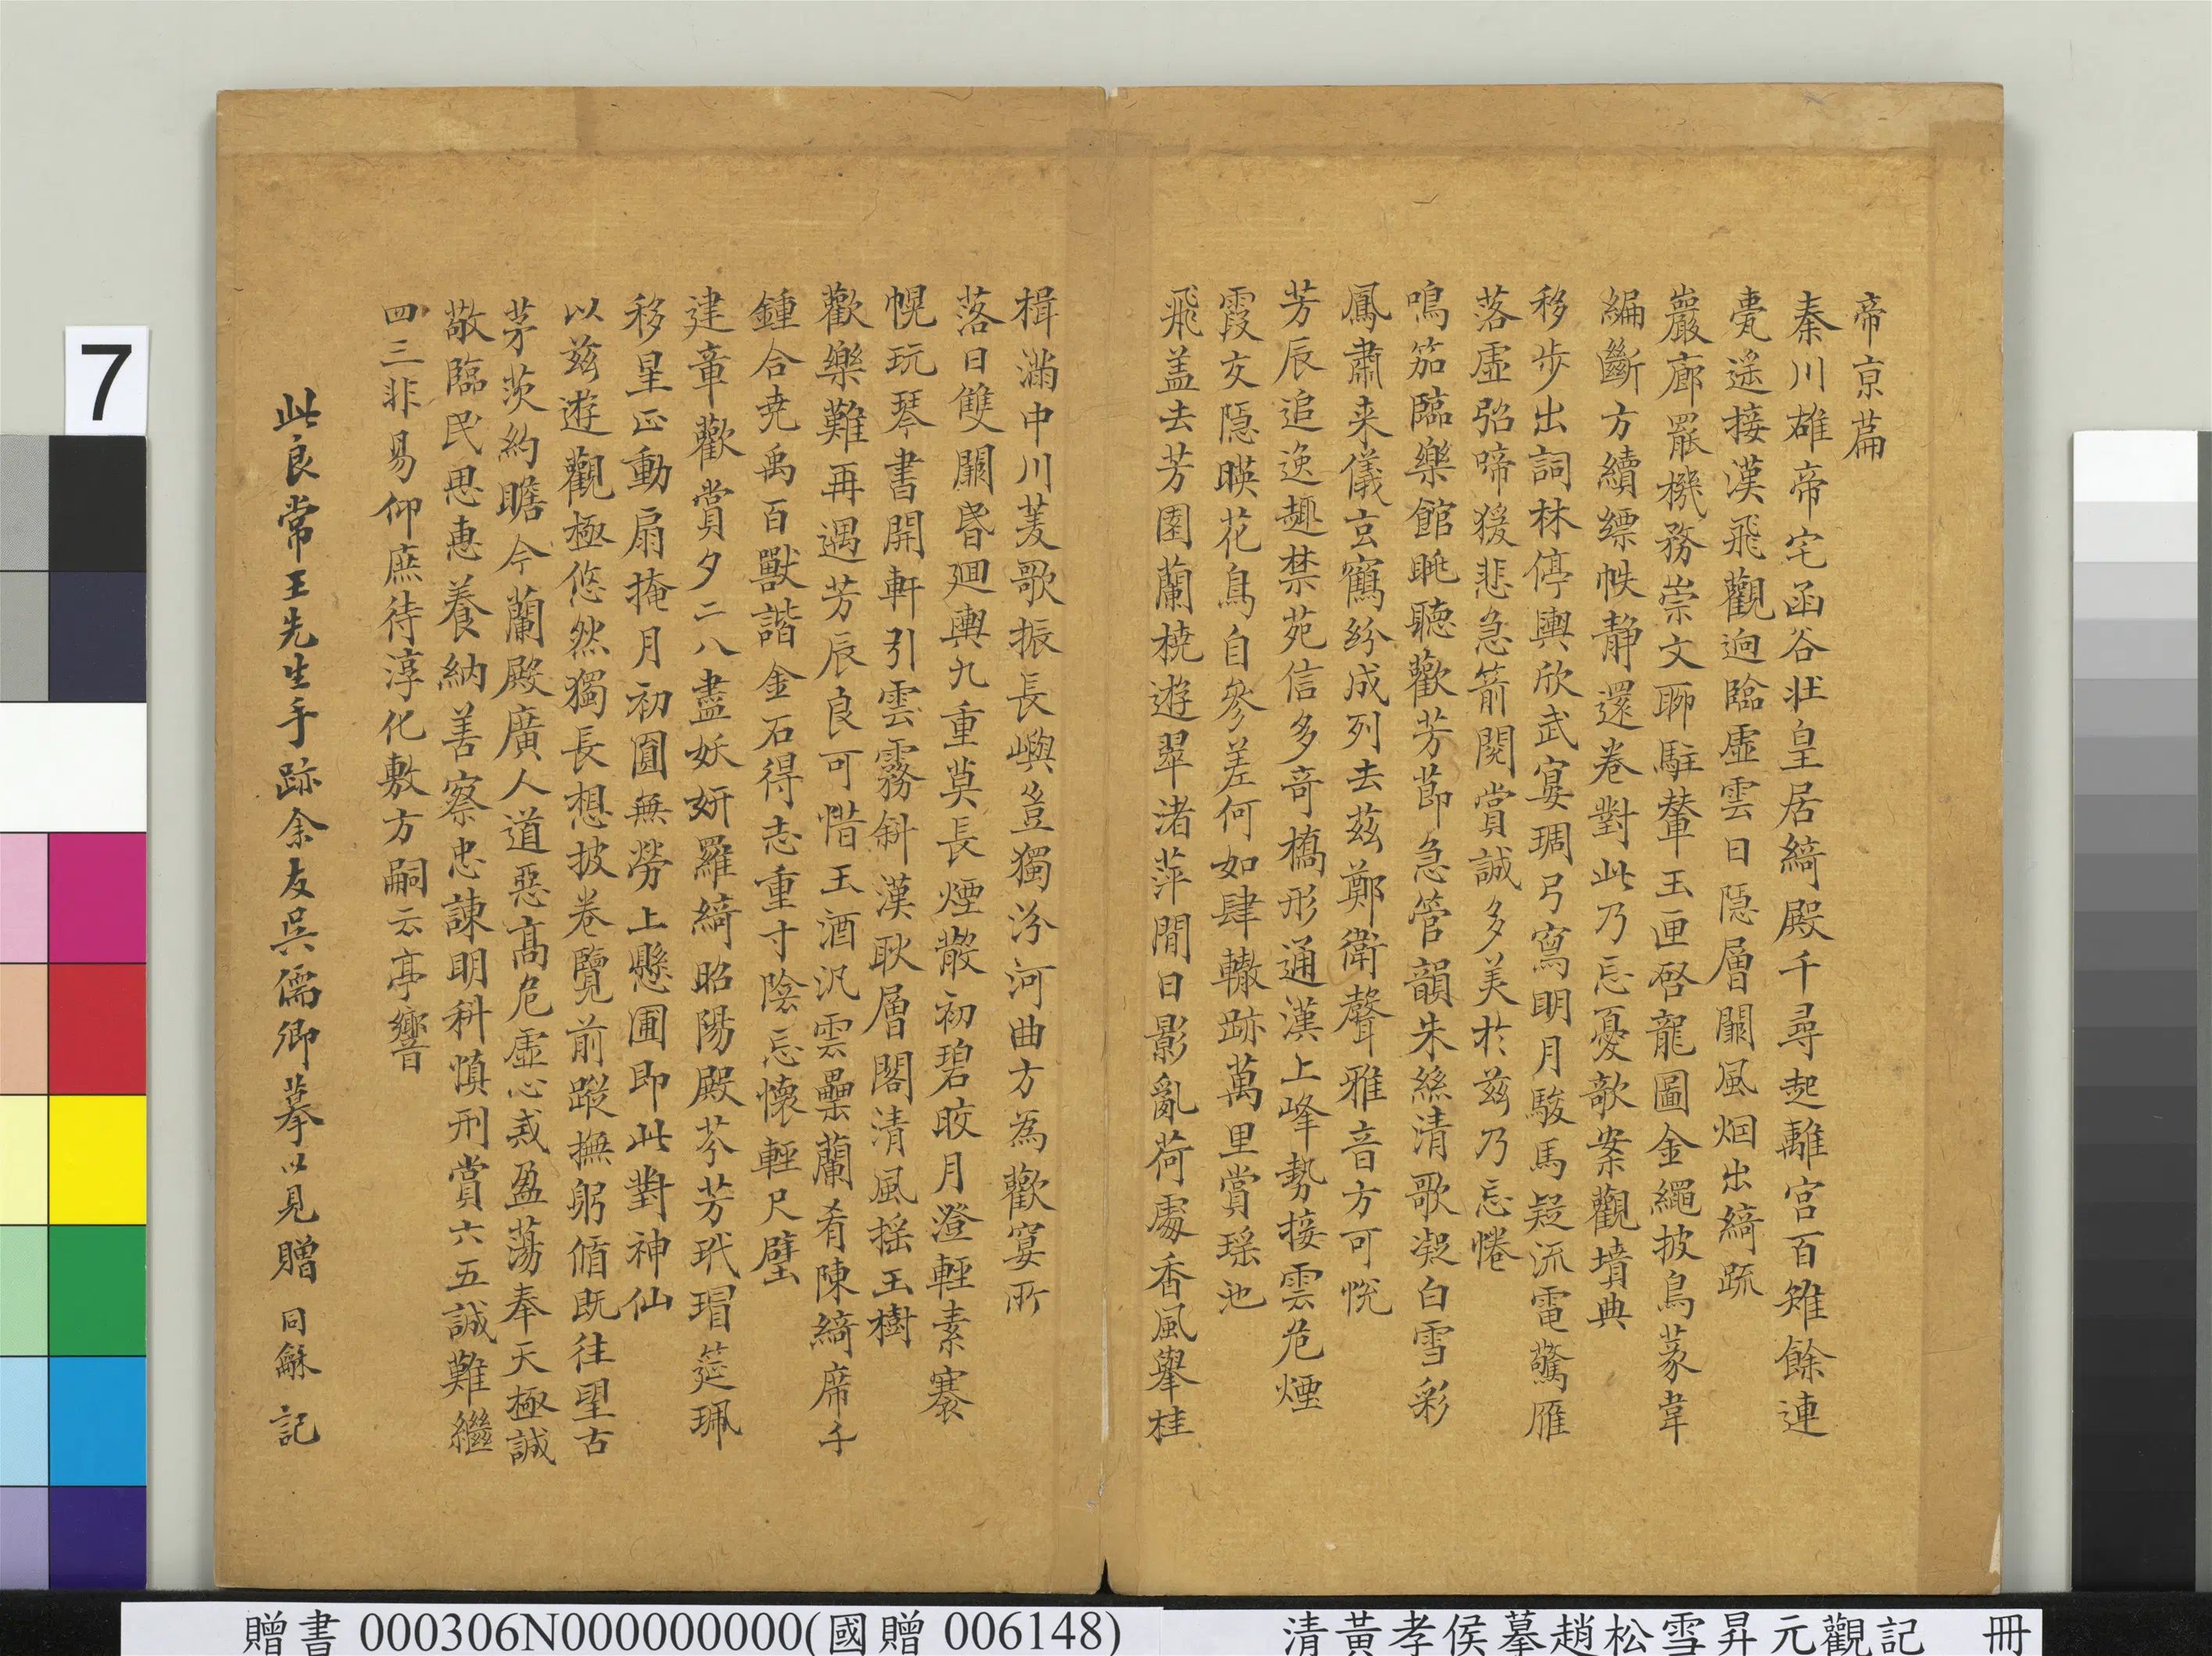 帝京篇
秦川雄帝宅函谷壯皇居綺殿千尋起離宮百雉餘連
甍遙接漢飛觀迥臨虛雲日隱層闕風烟出綺疏
巖廊罷機務崇文聊駐輦玉匣啓龍圖金繩披鳥篆韋
編斷方續縹帙靜還卷對此乃忘憂欹案觀墳典
移步出詞林停輿欣武宴琱弓寫明月駿馬疑流電驚雁
落虛弨啼猨悲急箭閱賞誠多美於茲乃忘惓
鳴笳臨樂館眺聽歡芳節急管韻朱絲清歌凝白雪彩
鳳肅来儀玄鶴紛成列去茲鄭衛聲雅音方可悅
芳辰追逸趣禁苑信多奇橋形通漢上峰勢接雲危煙
霞交隱暎花鳥自參差何如肆轍跡萬里賞瑤池
飛盖去芳園蘭橈遊翠渚萍間日影亂荷處香風舉桂
楫滿中川菱歌振長嶼豈獨汾河曲方為歡宴所
落日雙闕昏廻輿九重莫長煙散初碧皎月澄輕素褰
幌玩琴書開軒引雲霧斜漢耿層閣清風搖玉樹
歡樂難再遇芳辰良可惜玉酒汎雲罍蘭肴陳綺席千
鍾合尭禹百獸諧金石得志重寸陰忘懷輕尺璧
建章歡賞夕二八盡妖妍羅綺昭陽殿芬芳玳瑁筵珮
移星正動扇掩月初圓無勞上懸圃即此對神仙
以茲遊觀極悠然獨長想披卷覽前蹤撫躬脩既往望古
茅茨約瞻今蘭殿廣人道惡高危虛心戒盈蕩奉天極誠
敬臨民思惠養納善察忠諫明科慎刑賞六五誠難繼
四三非易仰庶待淳化敷方嗣云亭響
此良常王先生手跡余友吳儒卿摹以見贈 同龢 記
7
贈書 000306N000000000(國贈 006148)
清黃孝侯摹趙松雪昇元觀記 冊